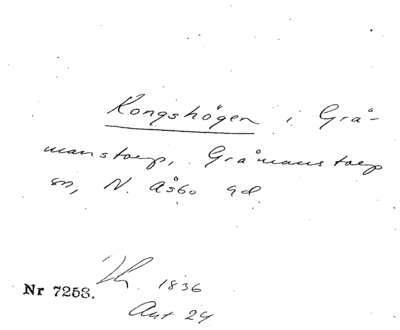 Kongshögen i Grå-
manstorp, Gråmanstorp
sn, N. Åsbo hd
1836
Nr 7253.
Ant 24